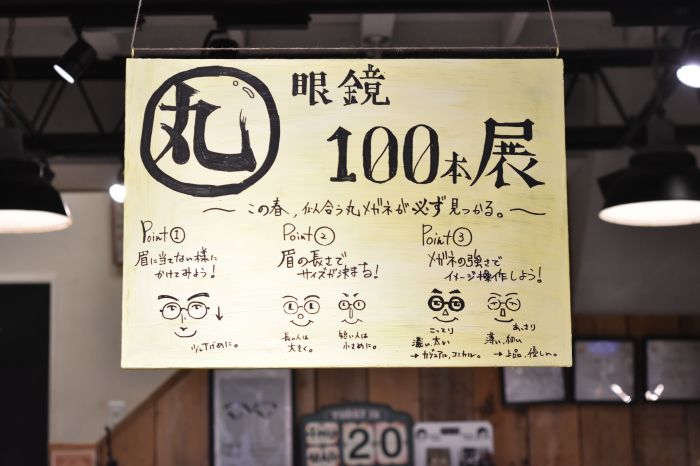 丸
眼鏡
100本展
〜この春、似合う丸メガネが必ず見つかる。〜
Point①
眉に当てない様に
かけてみよう!
少し下げめに。
Point②
眉の長さで
サイズが決まる!
長い人は
大きく。
短い人は
小さめに。
Point③
メガネの強さで
イメージ操作しよう!
こってり
濃い、太い
→カジュアル、コミカル。
あっさり
薄い、細い
→上品、優しい。
TODAY IS
20